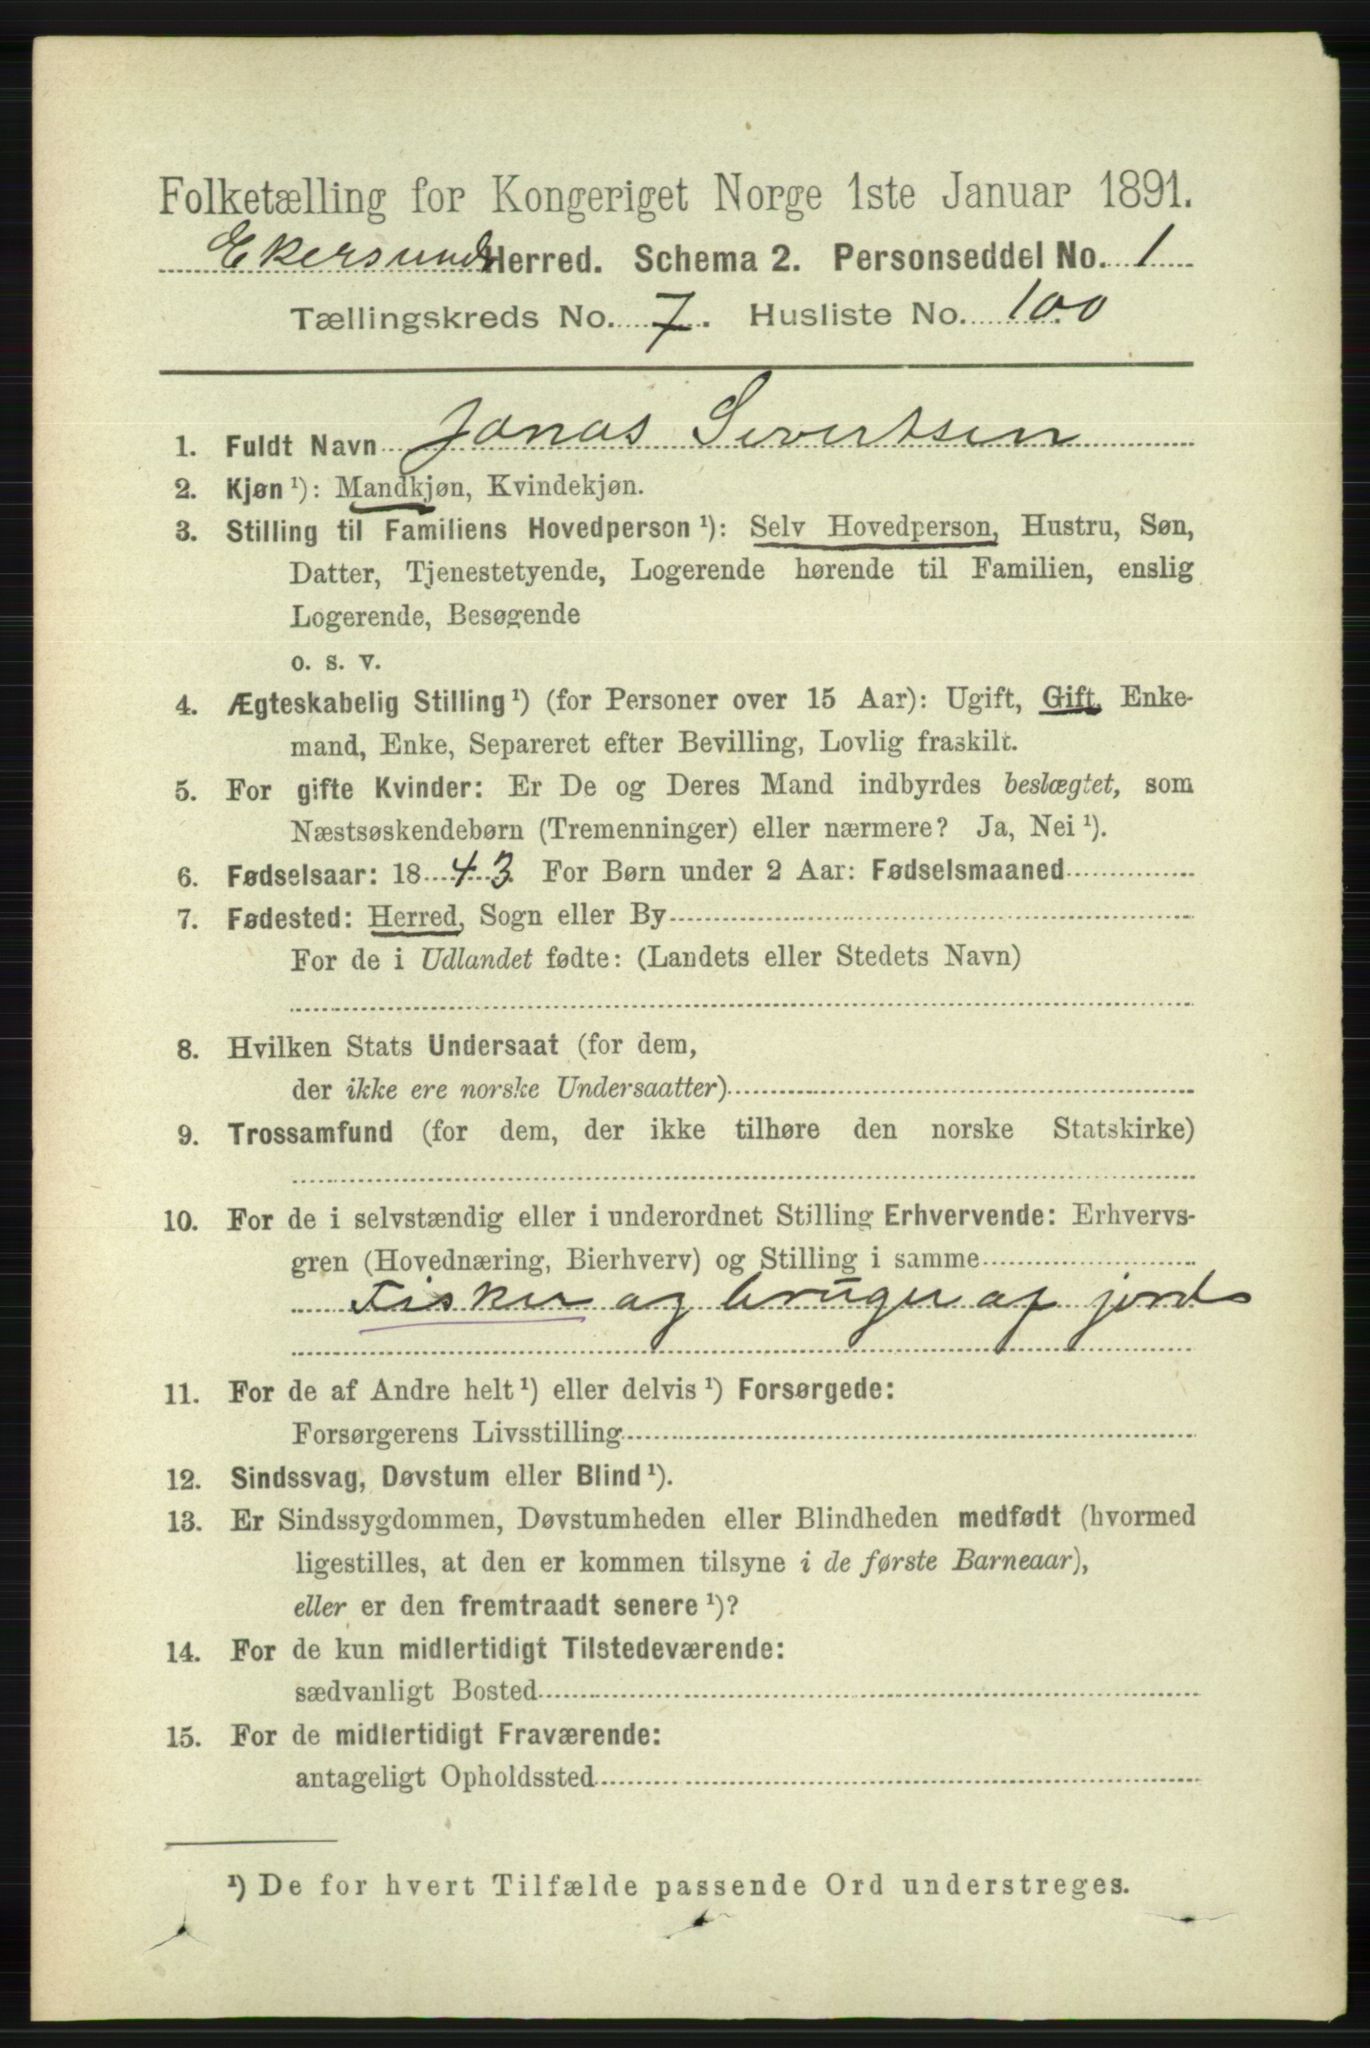 Folketælling for Kongeriget Norge 1ste Januar 1891.
Ekersunds Herred. Schema 2. Personseddel No. 1
Tællingskreds No. 7. Husliste No. 100
1. Fuldt Navn Jonas Sivertsen
2. Kjøn ¹): Mandkjøn, Kvindekjøn.
3. Stilling til Familiens Hovedperson ¹): Selv Hovedperson, Hustru, Søn,
Datter, Tjenestetyende, Logerende hørende til Familien, enslig
Logerende, Besøgende
o. s. v.
4. Ægteskabelig Stilling ¹) (for Personer over 15 Aar): Ugift, Gift, Enke-
mand, Enke, Separeret efter Bevilling, Lovlig fraskilt.
5. For gifte Kvinder: Er De og Deres Mand indbyrdes beslægtet, som
Næstsøskendebørn (Tremenninger) eller nærmere? Ja, Nei ¹).
6. Fødselsaar: 1843. For Børn under 2 Aar: Fødselsmaaned
7. Fødested: Herred, Sogn eller By
For de i Udlandet fødte: (Landets eller Stedets Navn)
8. Hvilken Stats Undersaat (for dem,
der ikke ere norske Undersaatter)
9. Trossamfund (for dem, der ikke tilhøre den norske Statskirke)
10. For de i selvstændig eller i underordnet Stilling Erhvervende: Erhvervs-
gren (Hovednæring, Bierhverv) og Stilling i samme
Fisker og bruger af jord
11. For de af Andre helt ¹) eller delvis ¹) Forsørgede:
Forsørgerens Livsstilling
12. Sindssvag, Døvstum eller Blind ¹).
13. Er Sindssygdommen, Døvstumheden eller Blindheden medfødt (hvormed
ligestilles, at den er kommen tilsyne i de første Barneaar),
eller er den fremtraadt senere ¹)?
14. For de kun midlertidigt Tilstedeværende:
sædvanligt Bosted
15. For de midlertidigt Fraværende:
antageligt Opholdssted
¹) De for hvert Tilfælde passende Ord understreges.